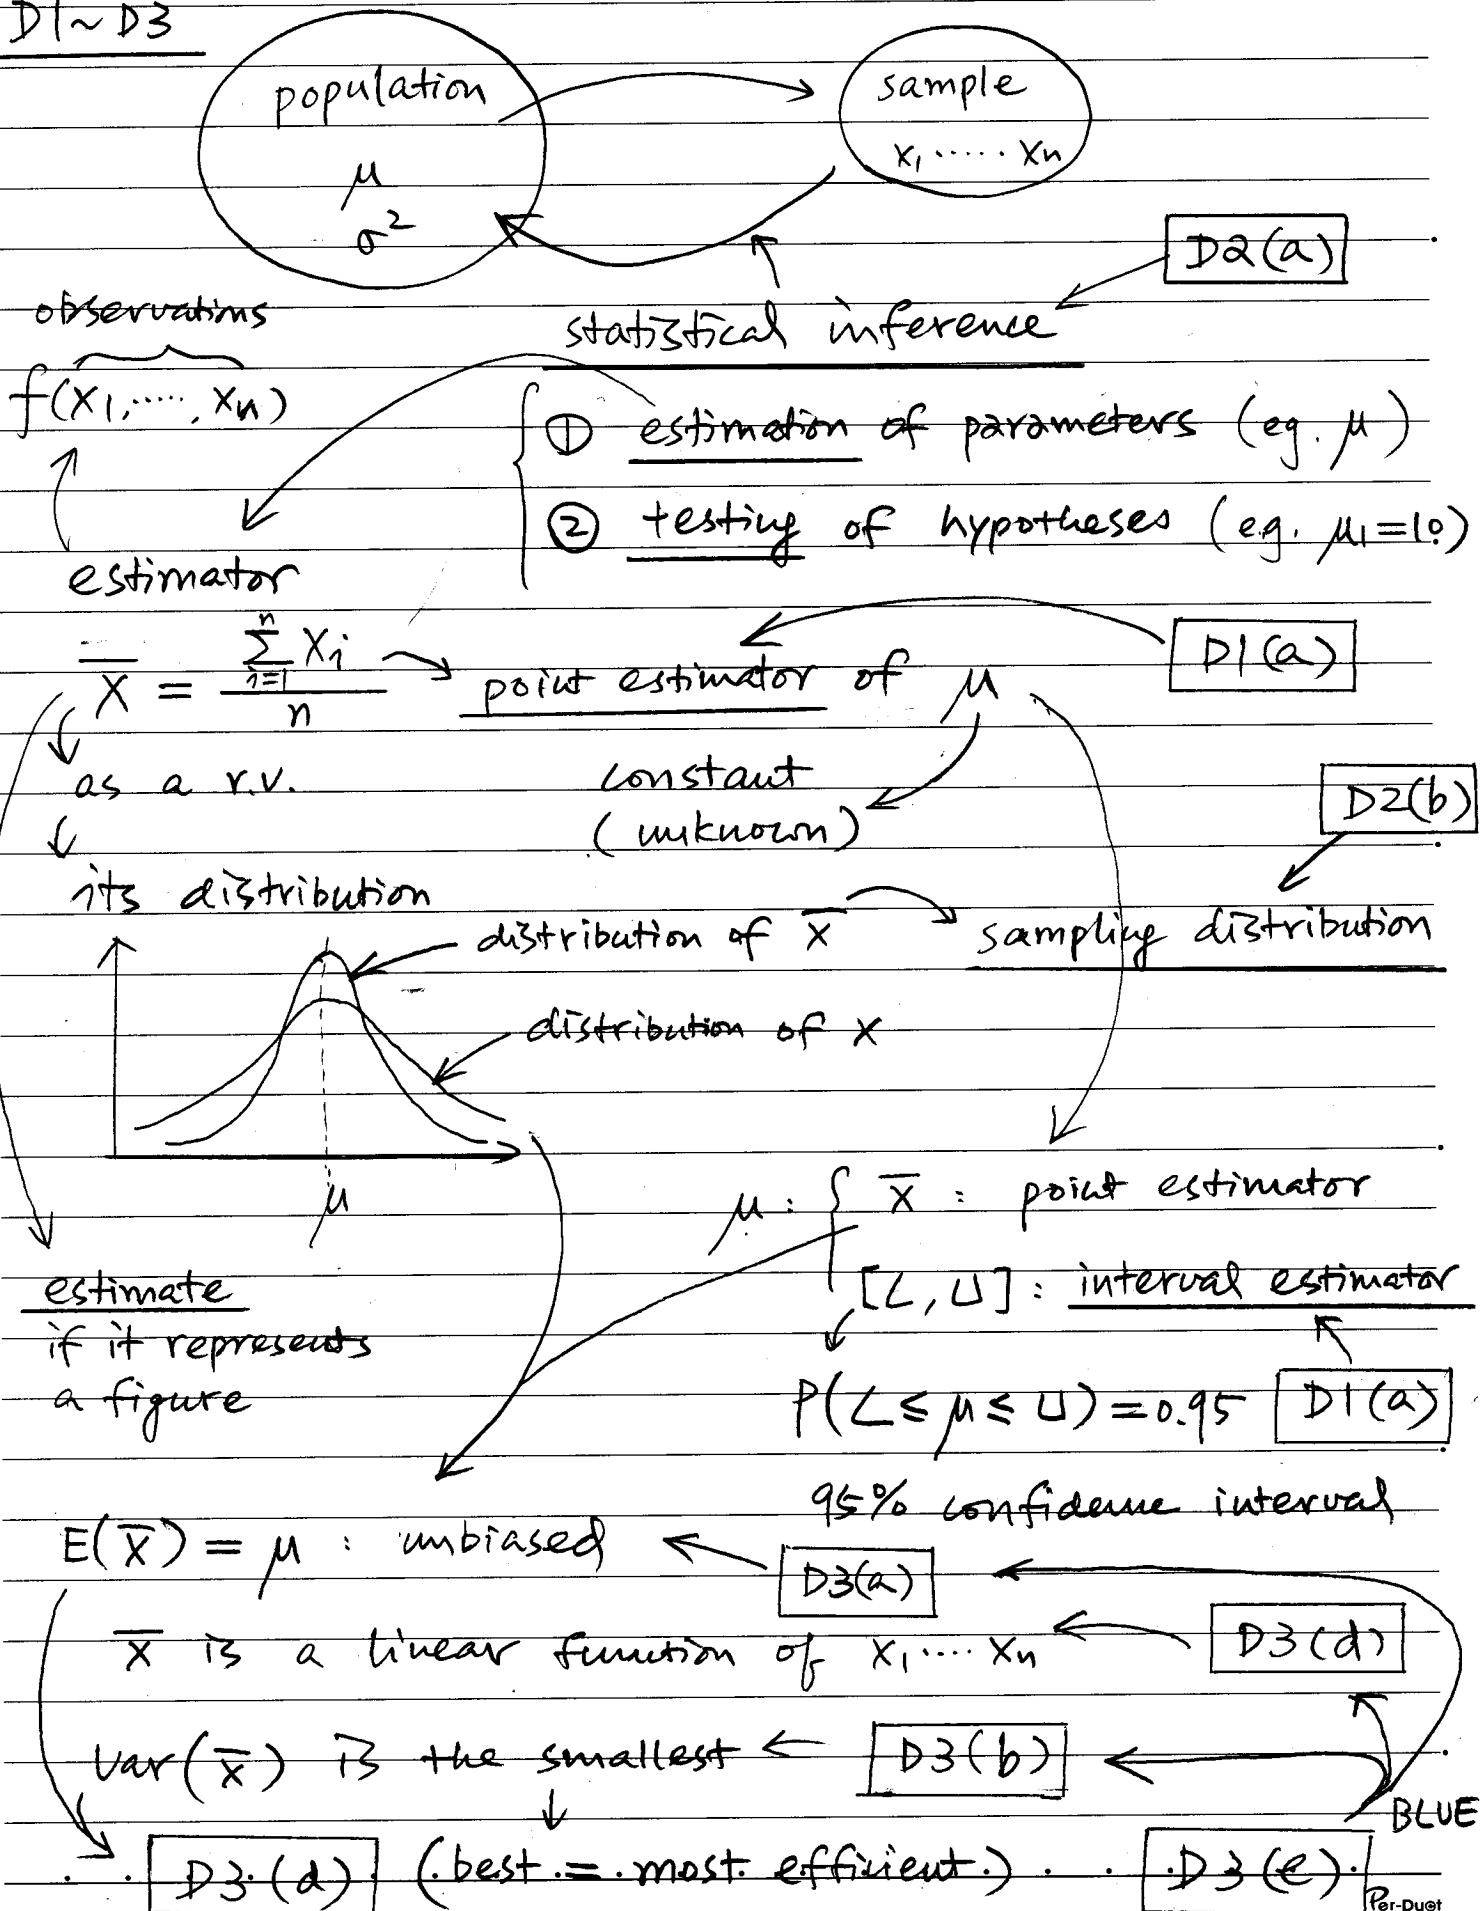 D1~D3
population
μ
σ²
sample
x₁ ..... xₙ
D2(a)
observations
f(x₁, ....., xₙ)
statistical inference
① estimation of parameters (eg. μ)
② testing of hypotheses (e.g. μ₁=10)
estimator
X̄ = Σⁿᵢ₌₁ Xᵢ / n → point estimator of μ
D1(a)
as a r.v.
constant
(unknown)
D2(b)
its distribution
distribution of X̄
sampling distribution
distribution of x
μ
μ : { X̄ : point estimator
[L, U] : interval estimator
estimate
if it represents
a figure
P(L ≤ μ ≤ U) = 0.95
D1(a)
95% confidence interval
E(X̄) = μ : unbiased
D3(a)
X̄ is a linear function of x₁ .... xₙ
D3(d)
var(X̄) is the smallest
D3(b)
BLUE
D3(d)
(best = most efficient)
D3(e)
Per-Duet